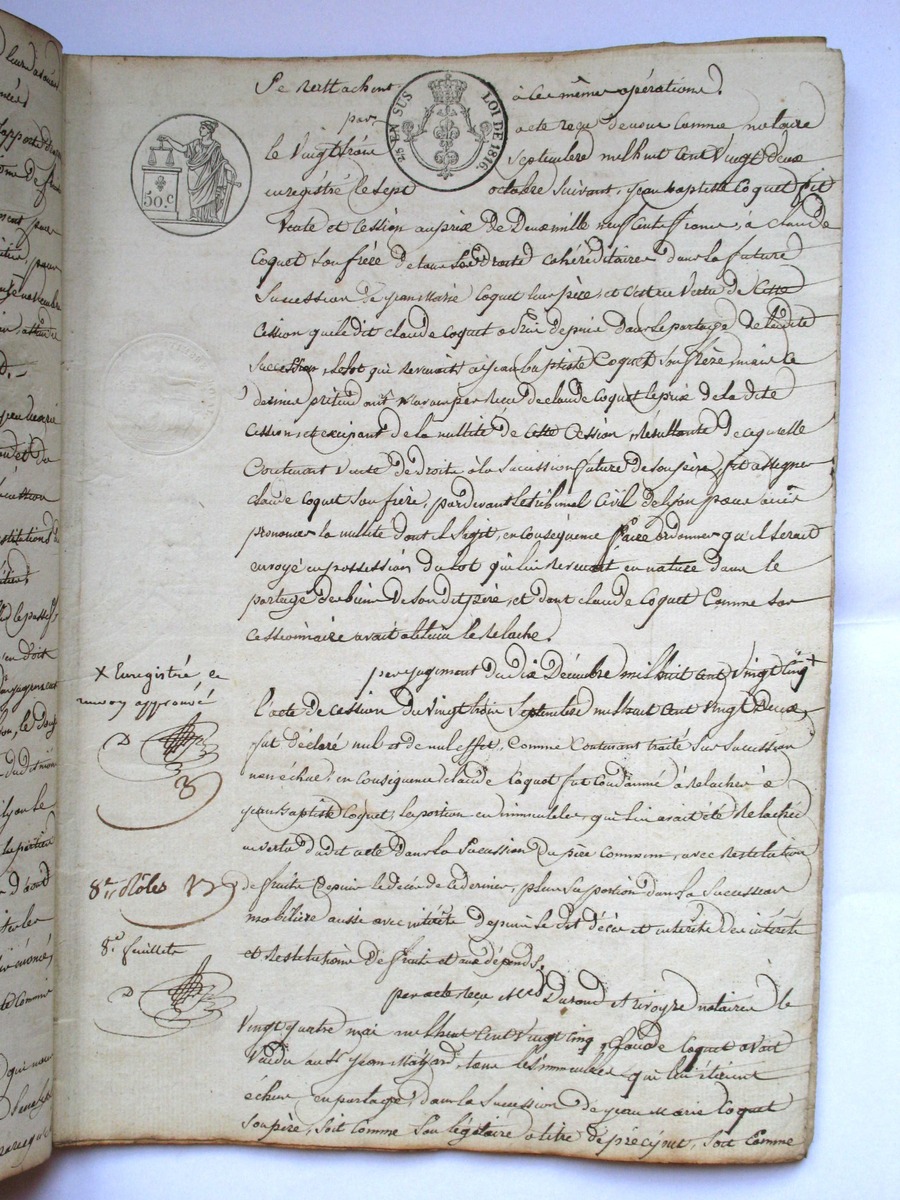 Se rattachent à ces mêmes opérations.
par acte reçu de nous comme notaire
le Vingt trois Septembre mil huit cent vingt deux
enregistré le Sept octobre suivant, jean baptiste Coquet fit
Vente et Cession au prix de Deux mille neuf cents francs, à Claude
Coquet Son frère de tous les Droits cohéréditaires dans la future
Succession de jean Marie Coquet leur père, et c'est en vertu de Cette
Cession que le dit claude Coquet a depuis dans le partage de ladite
Succession le lot qui revenait à jean baptiste Coquet Son frère, mais ce
dernier prétendant n'avoir pas reçu de claude Coquet le prix de la dite
cession, et excipant de la nullité de cette Cession, Résultante de ce qu'elle
Contenait Vente de Droits à la Succession future de son père, fit assigner
claude Coquet Son frère, pardevant le tribunal Civil de Lyon pour voir
prononcer la nullité dont il S'agit, en conséquence faire ordonner qu'il serait
envoyé en possession du lot qui lui revenait en nature dans le
partage des biens de Son dit père, et dont claude Coquet Comme son
cessionnaire avait obtenu le relache.
par jugement du dix Décembre mil huit cent Vingt Cinq +
l'acte de cession du vingt trois Septembre mil huit Cent Vingt Deux,
fut déclaré nul et de nul effet, Comme Contenant traité Sur Succession
non échue; en Conséquence claude Coquet fut Condamné à relacher à
jean Baptiste Coquet, la portion en immeubles, qui lui avait été relachée
en vertu du dit acte dans la Succession du père Commun, avec restitution
de fruits depuis le décès de ce dernier, plus Sa portion dans la Succession
mobilière aussi avec intérêts depuis le dit décès et intérêts des intérêts
et restitutions de fruits et aux dépends.
par acte reçu Mes Durand et notaires le
Vingt quatre mai mil huit cent vingt cinq, Claude Coquet avait
Vendu au Sr. jean tous les immeubles, qui lui étaient
échus en partage, dans la Succession de jean Marie Coquet
Son père, Soit Comme Son légataire à titre de préciput, Soit Comme
45 EN SUS
LOI DE 1816.
50.C
X Enregistré, ce
renvoy approuvé
8e. Rôles
8e. feuillets